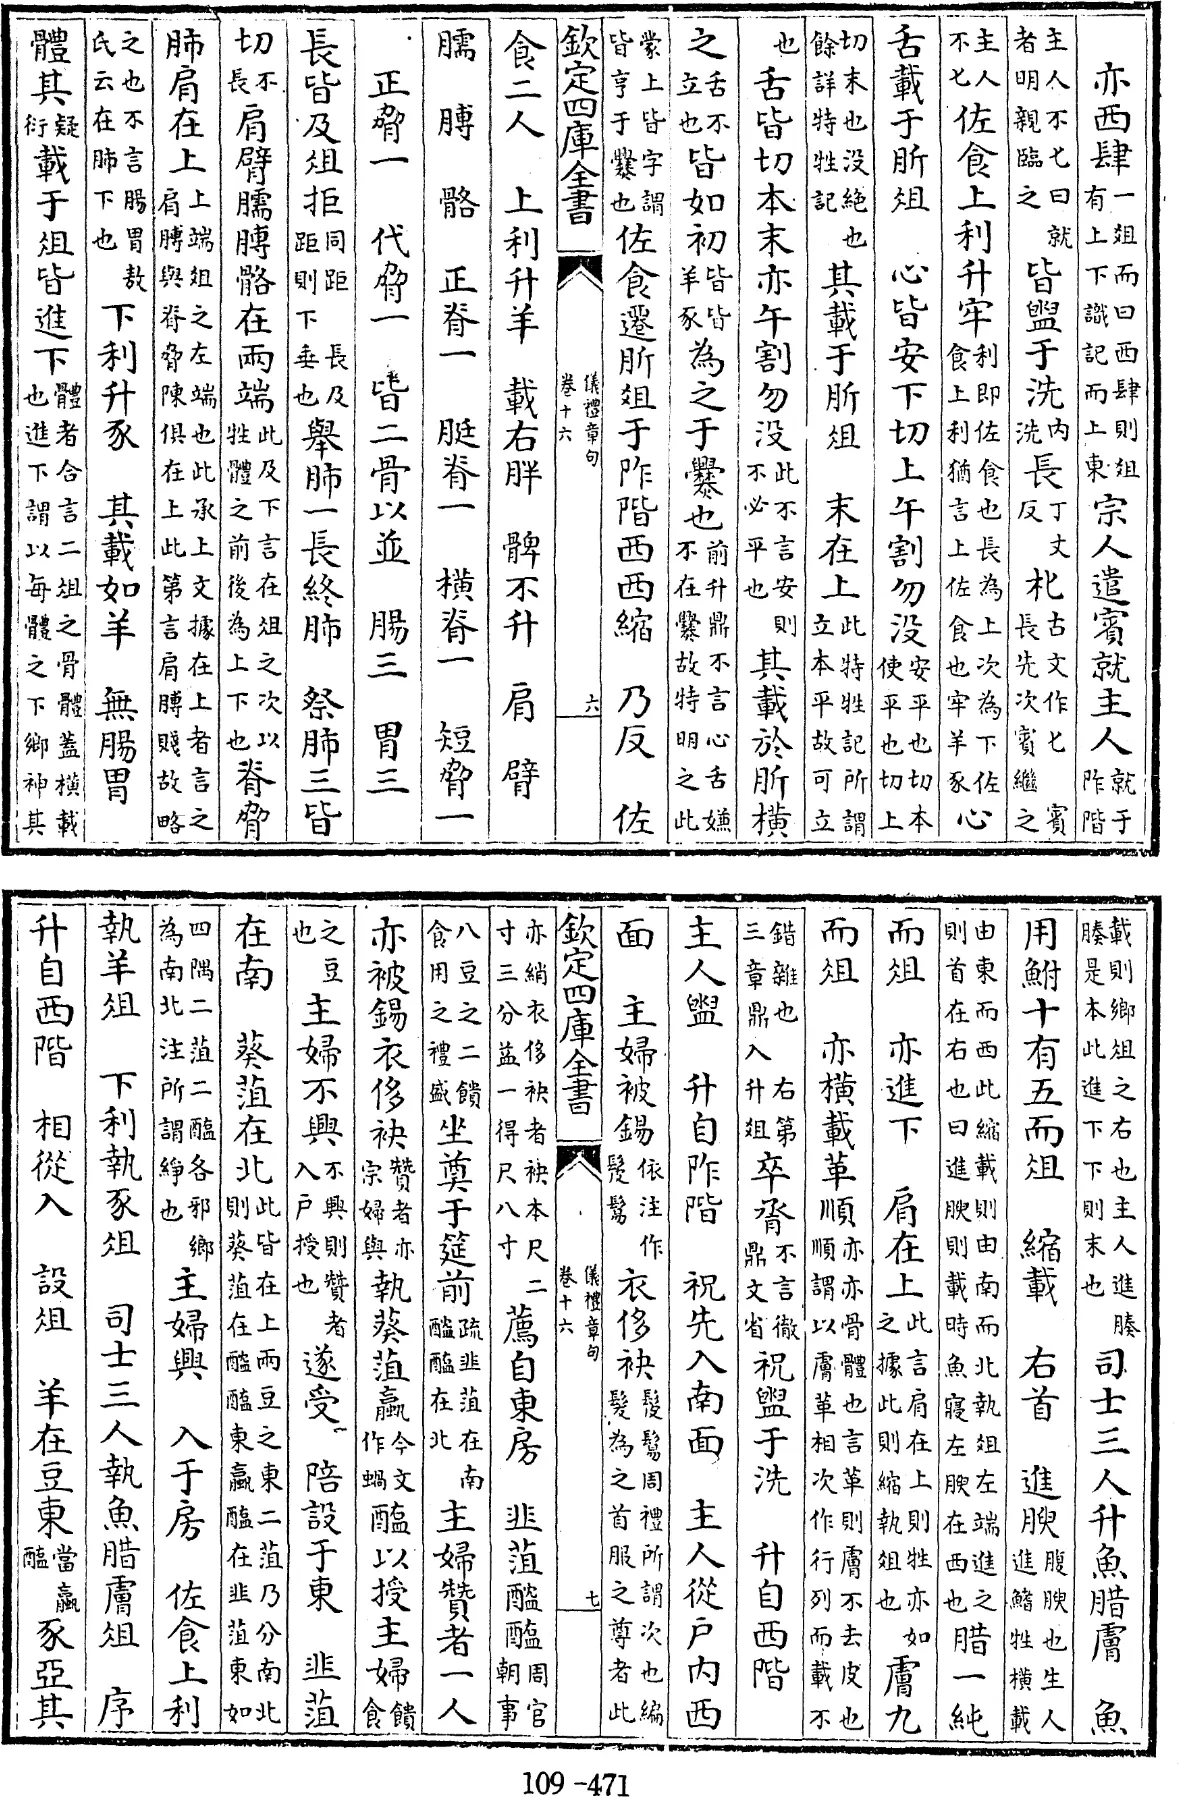 亦西肆一俎而曰西肆則俎有上下識記而上東宗人遣賓就主人就于阼階
主人不匕曰就者明親臨之皆盥于洗内洗長丁丈反朼古文作匕 賓長先次賓繼之
主人不匕佐食上利升牢利即佐食也長為上次為下佐食上利猶言上佐食也牢羊豕心
舌載于肵俎 心皆安下切上午割勿没安平也切本使平也切上
切末也没絶也餘詳特牲記其載于肵俎 末在上此特牲記所謂立本平故可立
也 舌皆切本末亦午割勿没此不言安則不必平也其載於肵橫
之舌不立也皆如初皆皆羊豕為之于爨也前升鼎不言心舌嫌不在爨故特明之此
蒙上皆字謂皆亨于爨也佐食遷肵俎于阼階西西縮 乃反 佐
欽定四庫全書 儀禮章句 卷十六 六
食二人 上利升羊 載右胖 髀不升 肩 臂
臑 膊 骼 正脊一 脡脊一 橫脊一 短脅一
正脅一 代脅一 皆二骨以並 腸三 胃三
長皆及俎拒同距 長及距則下垂也舉肺一長終肺 祭肺三皆
切不長肩臂臑膊骼在兩端此及下言在俎之次以牲體之前後為上下也脊脅
肺肩在上上端俎之左端也此承上文據在上者言之肩膊與脊脅陳俱在上此第言肩膊賤故略
之也不言腸胃敖氏云在肺下也下利升豕 其載如羊 無腸胃
體其疑衍載于俎皆進下體者合言二俎之骨體蓋橫載也進下謂以每體之下鄉神其
載則鄉俎之右也主人進腠腠是本此進下下則末也司士三人升魚腊膚 魚
用鮒十有五而俎 縮載 右首 進腴腹腴也生人進鰭牲橫載
由東而西此縮載則由南而北執俎左端進之則首在右也曰進腴則載時魚寢左腴在西也腊一純
而俎 亦進下 肩在上此言肩在上則牲亦如之據此則縮執俎也膚九
而俎 亦橫載革順亦亦骨體也言革則膚不去皮也順謂以膚革相次作行列而載不
錯雜也 右第三章鼎入升俎卒脀不言徹鼎文省祝盥于洗 升自西階
主人盥 升自阼階 祝先入南面 主人從户内西
面 主婦被錫依注作髲鬄衣侈袂髲鬄周禮所謂次也編髮為之首服之尊者此
欽定四庫全書 儀禮章句 卷十六 七
亦綃衣侈袂者袂本尺二寸三分益一得尺八寸薦自東房 韭菹醓醢周官朝事
八豆之二饋食用之禮盛坐奠于筵前疏韭菹在南醓醢在北主婦贊者一人
亦被錫衣侈袂贊者亦宗婦與執葵菹蠃今文作蝸醢以授主婦饋食
之豆也主婦不興不興則贊者入戶授也遂受 陪設于東 韭菹
在南 葵菹在北此皆在上兩豆之東二菹乃分南北則葵菹在醓醢東蠃醢在韭菹東如
四隅二菹二醢各邪鄉為南北注所謂綪也主婦興 入于房 佐食上利
執羊俎 下利執豕俎 司士三人執魚腊膚俎 序
升自西階 相從入 設俎 羊在豆東當蠃醢豕亞其
109-471